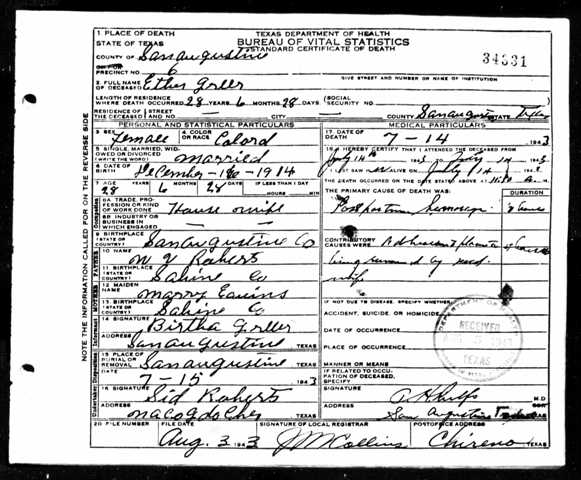 1 PLACE OF DEATH
TEXAS DEPARTMENT OF HEALTH
STATE OF TEXAS
BUREAU OF VITAL STATISTICS
COUNTY OF San augustine
STANDARD CERTIFICATE OF DEATH
34331
CITY OR
PRECINCT NO. 6
GIVE STREET AND NUMBER OR NAME OF INSTITUTION
2. FULL NAME OF DECEASED Ether Greer
LENGTH OF RESIDENCE WHERE DEATH OCCURRED 28 YEARS 6 MONTHS 28 DAYS
(SOCIAL SECURITY NO.
RESIDENCE OF THE DECEASED } STREET AND NO. CITY — COUNTY San augustine STATE
PERSONAL AND STATISTICAL PARTICULARS
MEDICAL PARTICULARS
3. SEX Female
4. COLOR OR RACE Colord
17. DATE OF DEATH 7-14 1943
5. SINGLE, MARRIED, WIDOWED OR DIVORCED (WRITE THE WORD) married
18. I HEREBY CERTIFY THAT I ATTENDED THE DECEASED FROM
July 14th 1943 TO July 14 1943
6. DATE OF BIRTH December - 16 - 1914
I LAST SAW ALIVE ON July 14 194
THE DEATH OCCURRED ON THE DATE STATED ABOVE AT M.
7. AGE 28 YEARS 6 MONTHS 28 DAYS IF LESS THAN 1 DAY HOURS MIN
THE PRIMARY CAUSE OF DEATH WAS:
DURATION
8A. TRADE, PROFESSION OR KIND OF WORK DONE House wife
Post partum
8B. INDUSTRY OR BUSINESS IN WHICH ENGAGED — —
9. BIRTHPLACE (STATE OR COUNTRY) San augustine Co
10. NAME Roberts
CONTRIBUTORY CAUSES WERE Adherent
being
11. BIRTHPLACE (STATE OR COUNTRY) Sabine Co
12. MAIDEN NAME Marry
13. BIRTHPLACE (STATE OR COUNTRY) Sabine Co
IF NOT DUE TO DISEASE, SPECIFY:
ACCIDENT, SUICIDE, OR HOMICIDE
14. SIGNATURE Birtha Greer
DATE OF OCCURRENCE
ADDRESS San augustine TEXAS
PLACE OF OCCURRENCE
DEPARTMENT OF HEALTH
RECEIVED
TEXAS
15. PLACE OF BURIAL OR REMOVAL San augustine TEXAS
MANNER OR MEANS
7-15 1943
IF RELATED TO OCCUPATION OF DECEASED, SPECIFY
16. SIGNATURE Sid Roberts
SIGNATURE M.D.
ADDRESS nacogdoches TEXAS
ADDRESS San Augustine
20. FILE NUMBER
FILE DATE Aug. 3 1943
SIGNATURE OF LOCAL REGISTRAR J M Collins
POSTOFFICE ADDRESS Chireno TEXAS
NOTE THE INFORMATION CALLED FOR ON THE REVERSE SIDE